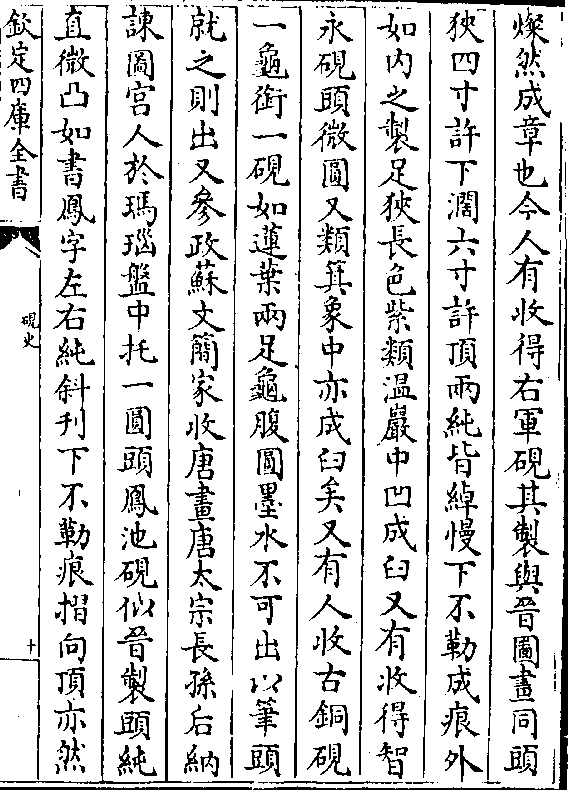 燦然成章也今人有收得右軍硯其製與晉圖畫同頭
狹四寸許下濶六寸許頂兩純皆綽慢下不勒成痕外
如内之製足狹長色紫類温巖中凹成臼又有收得智
永硯頭微圓又類箕象中亦成臼矣又有人收古銅硯
一龜銜一硯如蓮葉兩足龜腹圓墨水不可出以筆頭
就之則出又參政蘇文簡家收唐畫唐太宗長孫后納
諫圖宫人於瑪瑙盤中托一圓頭鳳池硯似晉製頭純
直微凸如書鳳字左右純斜刋下不勒痕摺向頂亦然
欽定四庫全書
硯史
十